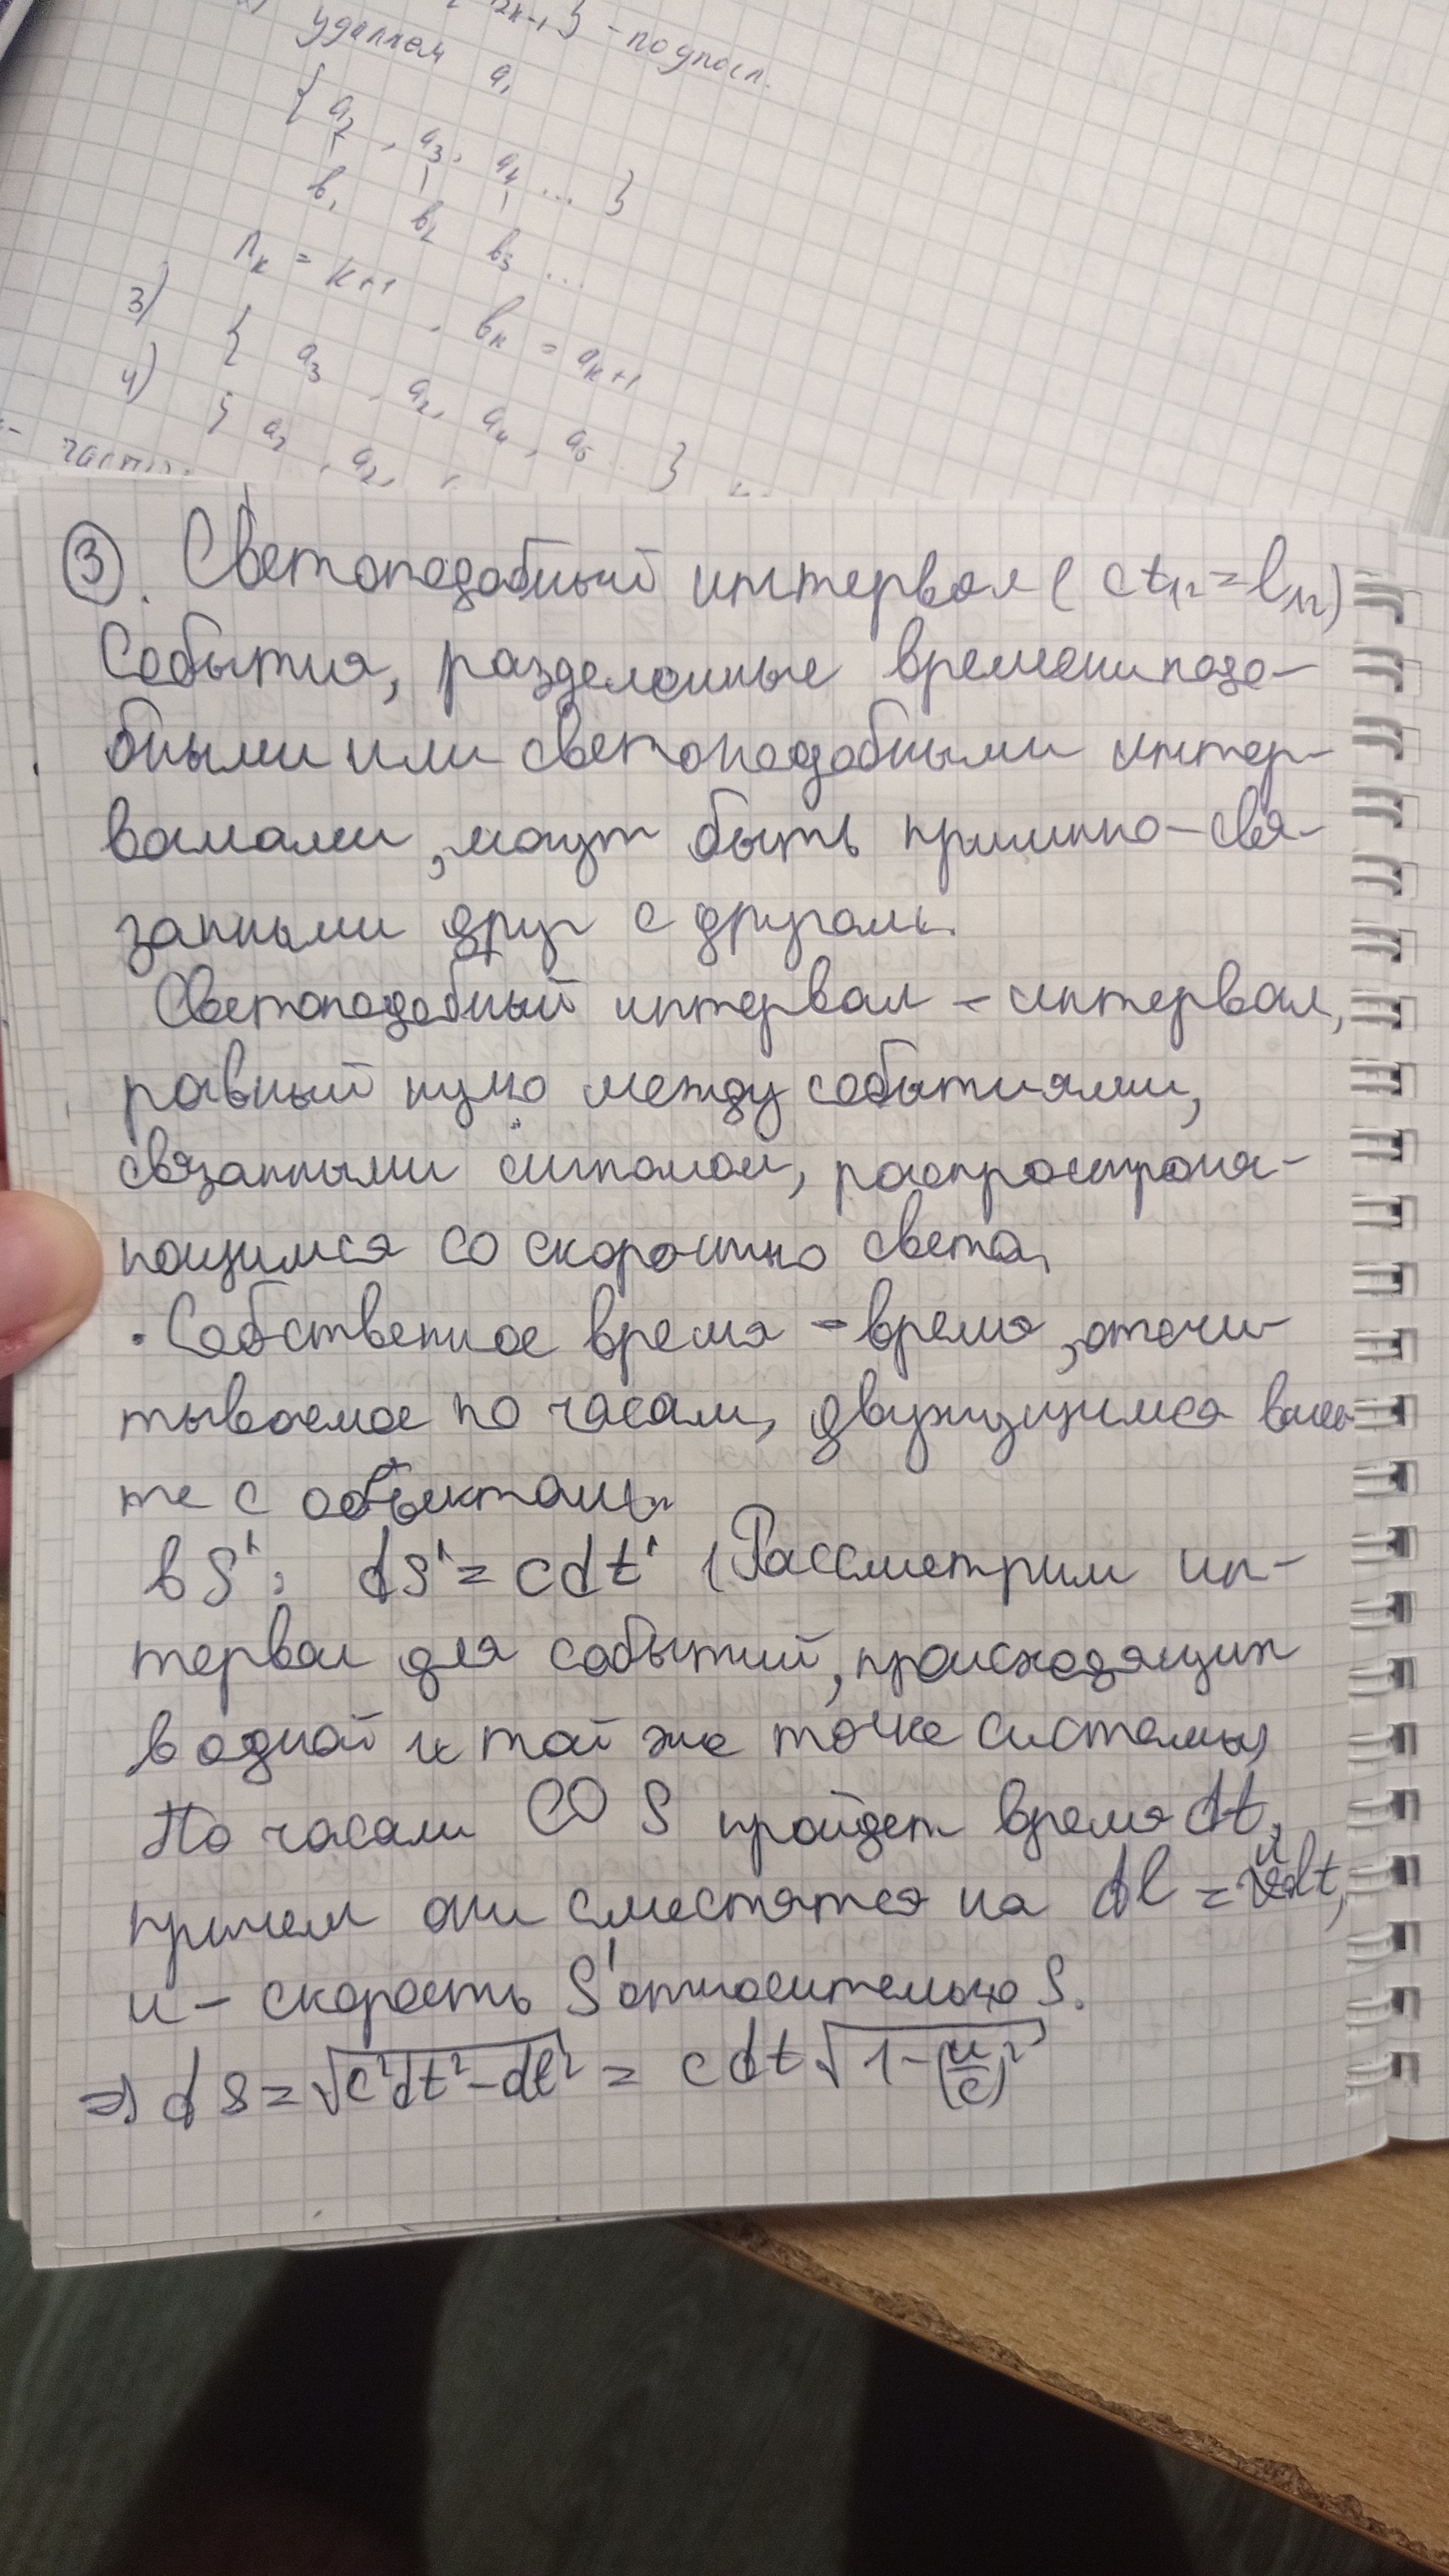 2k-1} - подпосл.
удаляем a₁
{ a₂, a₃, a₄ ... }
b₁ b₂ b₃ ...
n_k = k+1, b_k = a_{k+1}
3) { a₃, a₂, a₄, a₆ }
4) { a₂,
③. Светоподобный интервал (ct₁₂ = l₁₂)
События, разделенные времениподо-
бными или светоподобными интер-
валами, могут быть причинно-свя-
занными друг с другом.
Светоподобный интервал - интервал,
равный нулю между событиями,
связанными сигналом, распространя-
ющимся со скоростью света.
• Собственное время - время, отсчи-
тываемое по часам, движущимся вмес-
те с объектом.
в S': dS' = cdt' (Рассмотрим ин-
тервал для событий, происходящих
в одной и той же точке системы)
По часам СО S пройдет время dt,
причем они сместятся на dl = udt,
u - скорость S' относительно S.
⇒ dS = √(c²dt² - dl²) = cdt√(1 - (u/c)²)